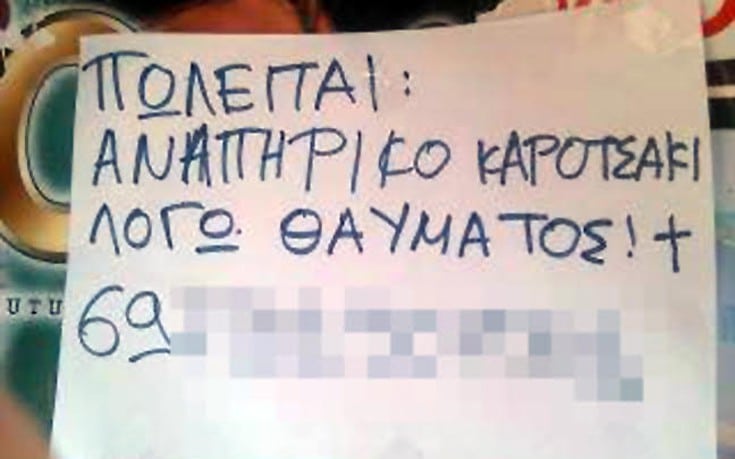 ΠΩΛΕΙΤΑΙ:
ΑΝΑΠΗΡΙΚΟ ΚΑΡΟΤΣΑΚΙ
ΛΟΓΩ ΘΑΥΜΑΤΟΣ! +
69
UTU